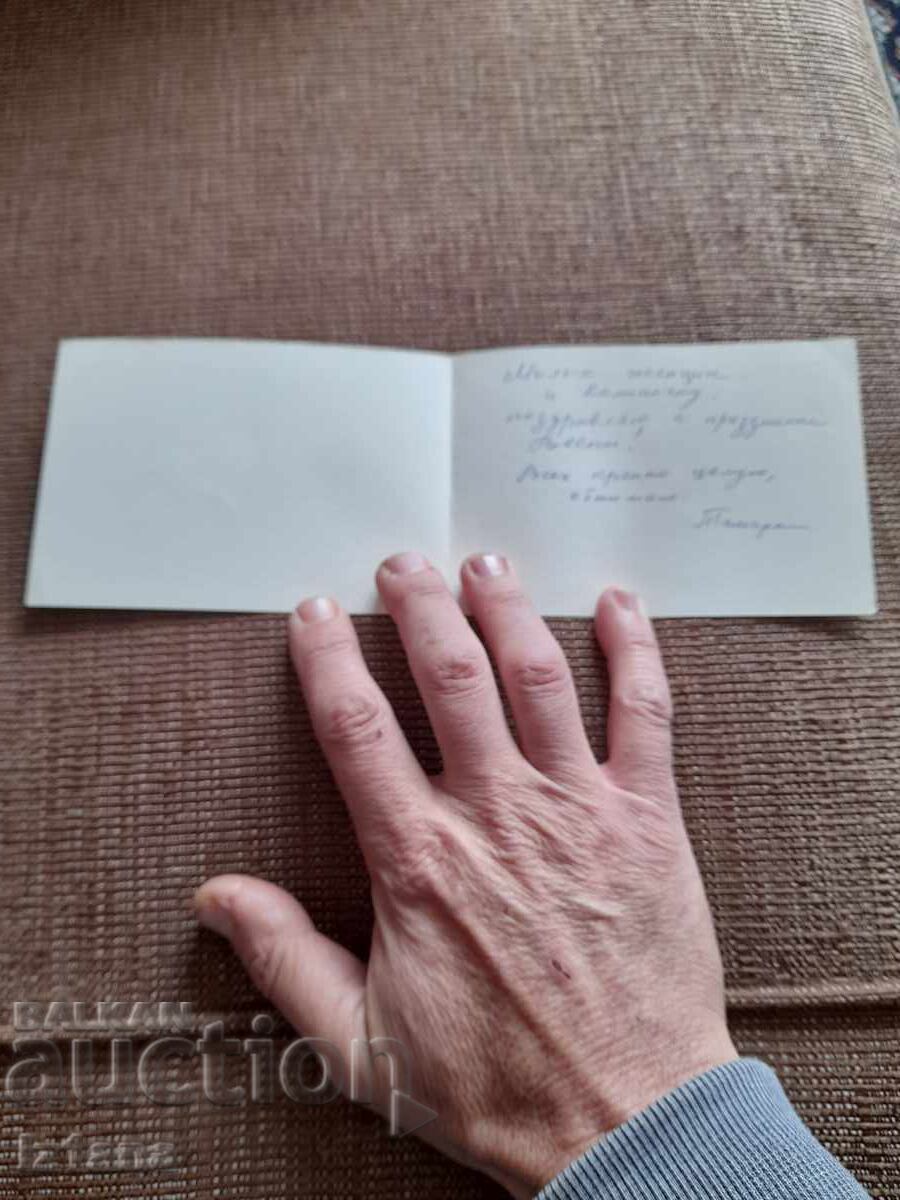 Милые женщины
и
поздравляю с праздником
Весны!
Всех крепко целую,
обнимаю
Тамара
BALKAN
auction
Iziana